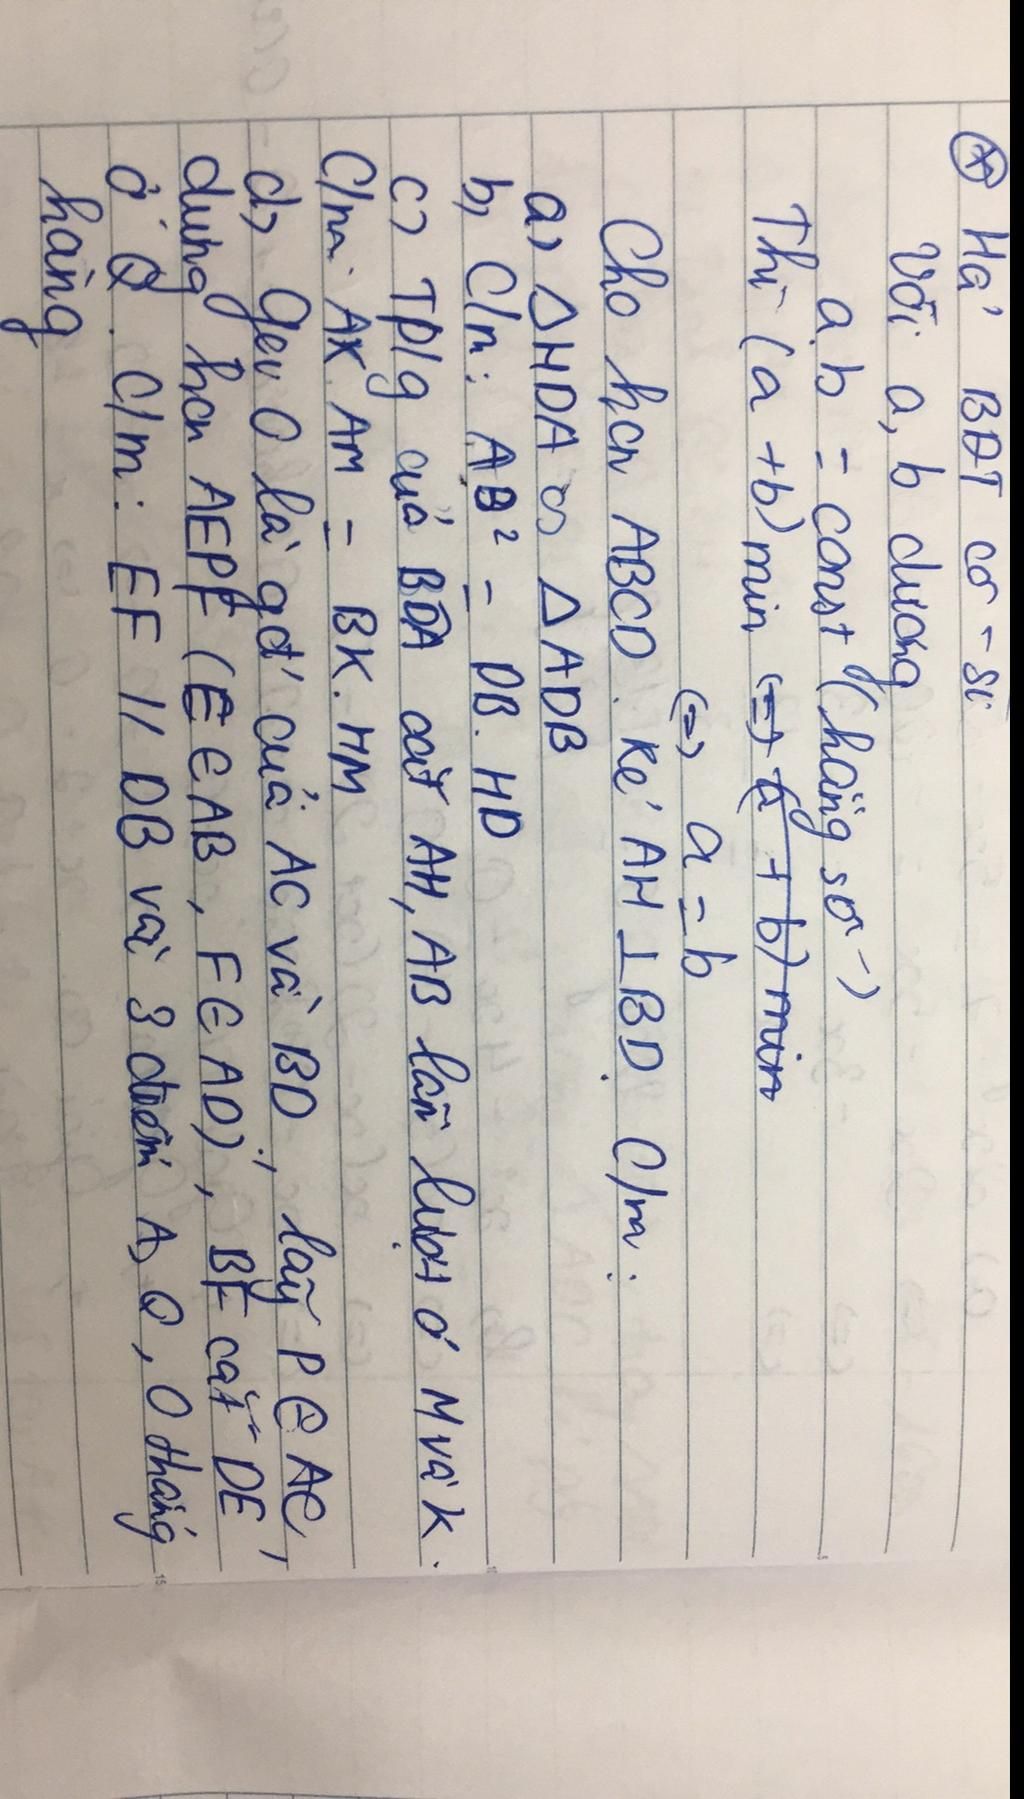 ⊛ Hq' BĐT cô-si
Với a, b dương
a.b = const (hằng số)
Thì (a+b)min (=) (a+b)min
(=) a=b
Cho hcn ABCD. Kẻ AH⊥BD. C/m:
a) ΔHDA ∽ ΔADB
b, C/m: AB² = DB.HD
c) Tp/g của BDA cắt AH, AB lần lượt ở M và K.
C/m: AK.AM = BK.HM
d) Gọi O là gđ' của AC và BD, lấy P ∈ AC,
dựng hcn AEPF (E∈AB, F∈AD), BF cắt DE
ở Q. C/m: EF // DB và 3 điểm A, Q, O thẳng
hàng